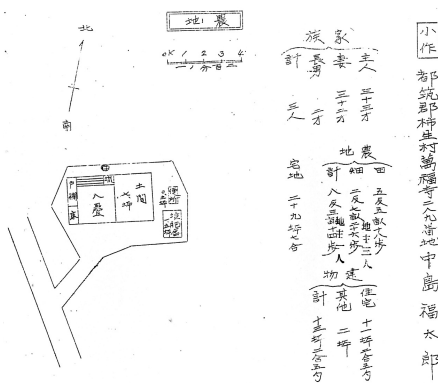 小作 都筑郡柿生村萬福寺二九番地 中島福太郎
家族
主人 三十三才
妻 三十二才
長男 二才
計 三人
農地
田 五反五畝十八歩
畑 二反七畝二十六歩
計 八反三畝十四歩
地主十二人
宅地 二十九坪七合
建物
住宅 十一坪七合五勺
其他 二坪
計 十三坪七合五勺
農1地
北
南
0K 1 2 3 4
二百分ノ一
土間
七坪
八疊
戸棚